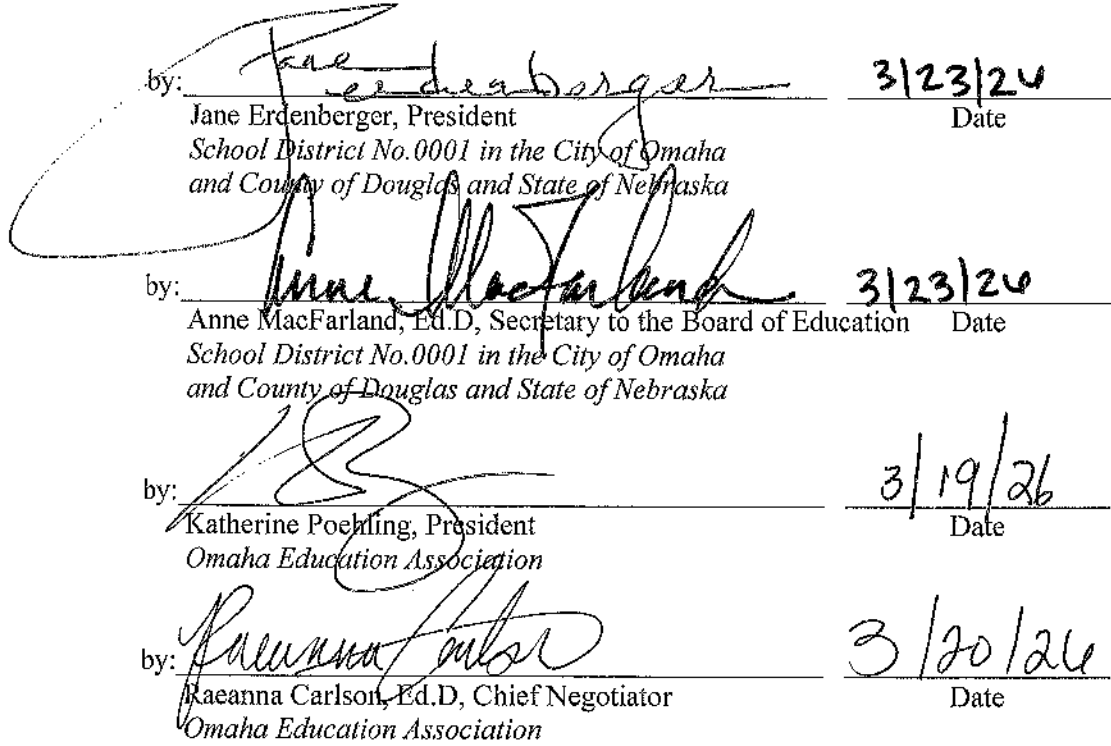 Jane
by: Erdenberger 3/23/26
Jane Erdenberger, President Date
School District No.0001 in the City of Omaha
and County of Douglas and State of Nebraska
by: Anne MacFarland 3/23/26
Anne MacFarland, Ed.D, Secretary to the Board of Education Date
School District No.0001 in the City of Omaha
and County of Douglas and State of Nebraska
by: 3/19/26
Katherine Poehling, President Date
Omaha Education Association
by: Raeanna Carlson 3/20/26
Raeanna Carlson, Ed.D, Chief Negotiator Date
Omaha Education Association